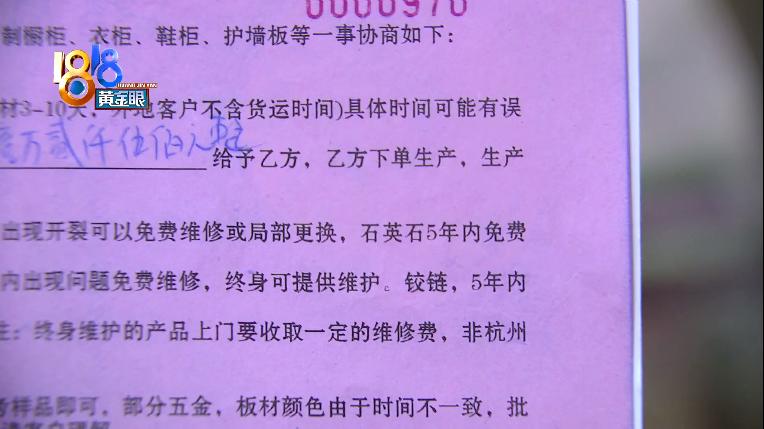 0000970
制橱柜、衣柜、鞋柜、护墙板等一事协商如下：
1818
黄金眼
材3-10天，外地客户不含货运时间)具体时间可能有误
壹万贰仟伍佰元整
给予乙方，乙方下单生产，生产
出现开裂可以免费维修或局部更换，石英石5年内免费
内出现问题免费维修，终身可提供维护。铰链，5年内
注：终身维护的产品上门要收取一定的维修费，非杭州
样品即可，部分五金，板材颜色由于时间不一致，批